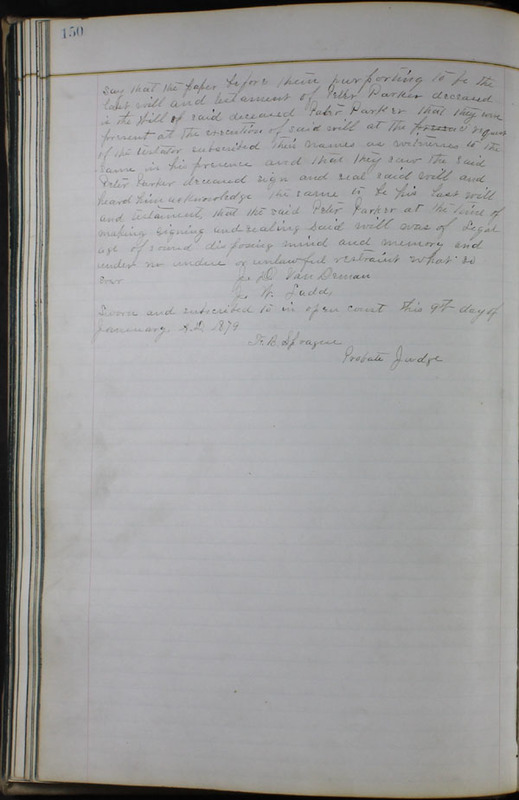 150
say that the paper before them purporting to be the
last will and testament of Peter Parker deceased
is the Will of said deceased Peter Parker that they were
present at the execution of said will at the request
of the testator subscribed their names as witnesses to the
same in his presence and that they saw the said
Peter Parker deceased sign and seal said will and
heard him acknowledge the same to be his last will
and testament, that the said Peter Parker at the time of
making signing and sealing said will was of legal
age of sound disposing mind and memory and
under no undue or unlawful restraint what so
ever
J. D. Van Deman
J. W. Ladd
Sworn and subscribed to in open court this 9th day of
January A.D. 1879
F. B. Sprague
Probate Judge